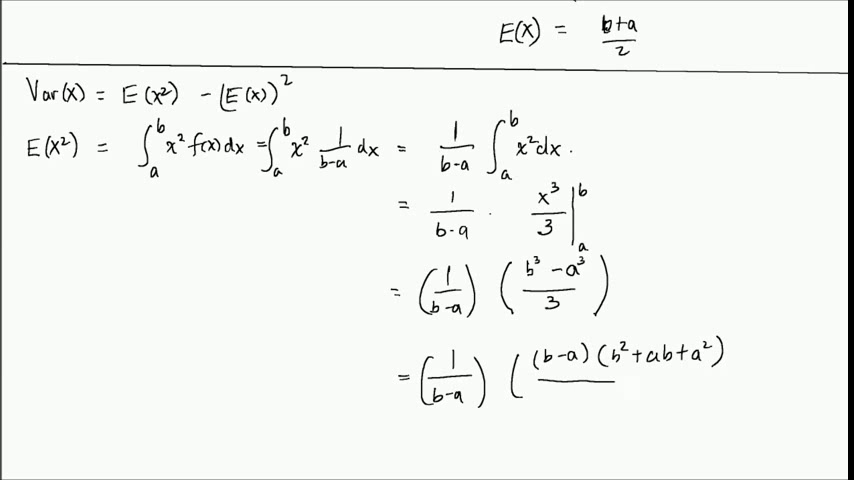 E(X) = (b+a)/2
Var(X) = E(X²) - (E(X))²
E(X²) = ∫_a^b x² f(x)dx = ∫_a^b x² 1/(b-a) dx = 1/(b-a) ∫_a^b x² dx.
= 1/(b-a) · x³/3 |_a^b
= (1/(b-a)) ((b³-a³)/3)
= (1/(b-a)) ((b-a)(b²+ab+a²)